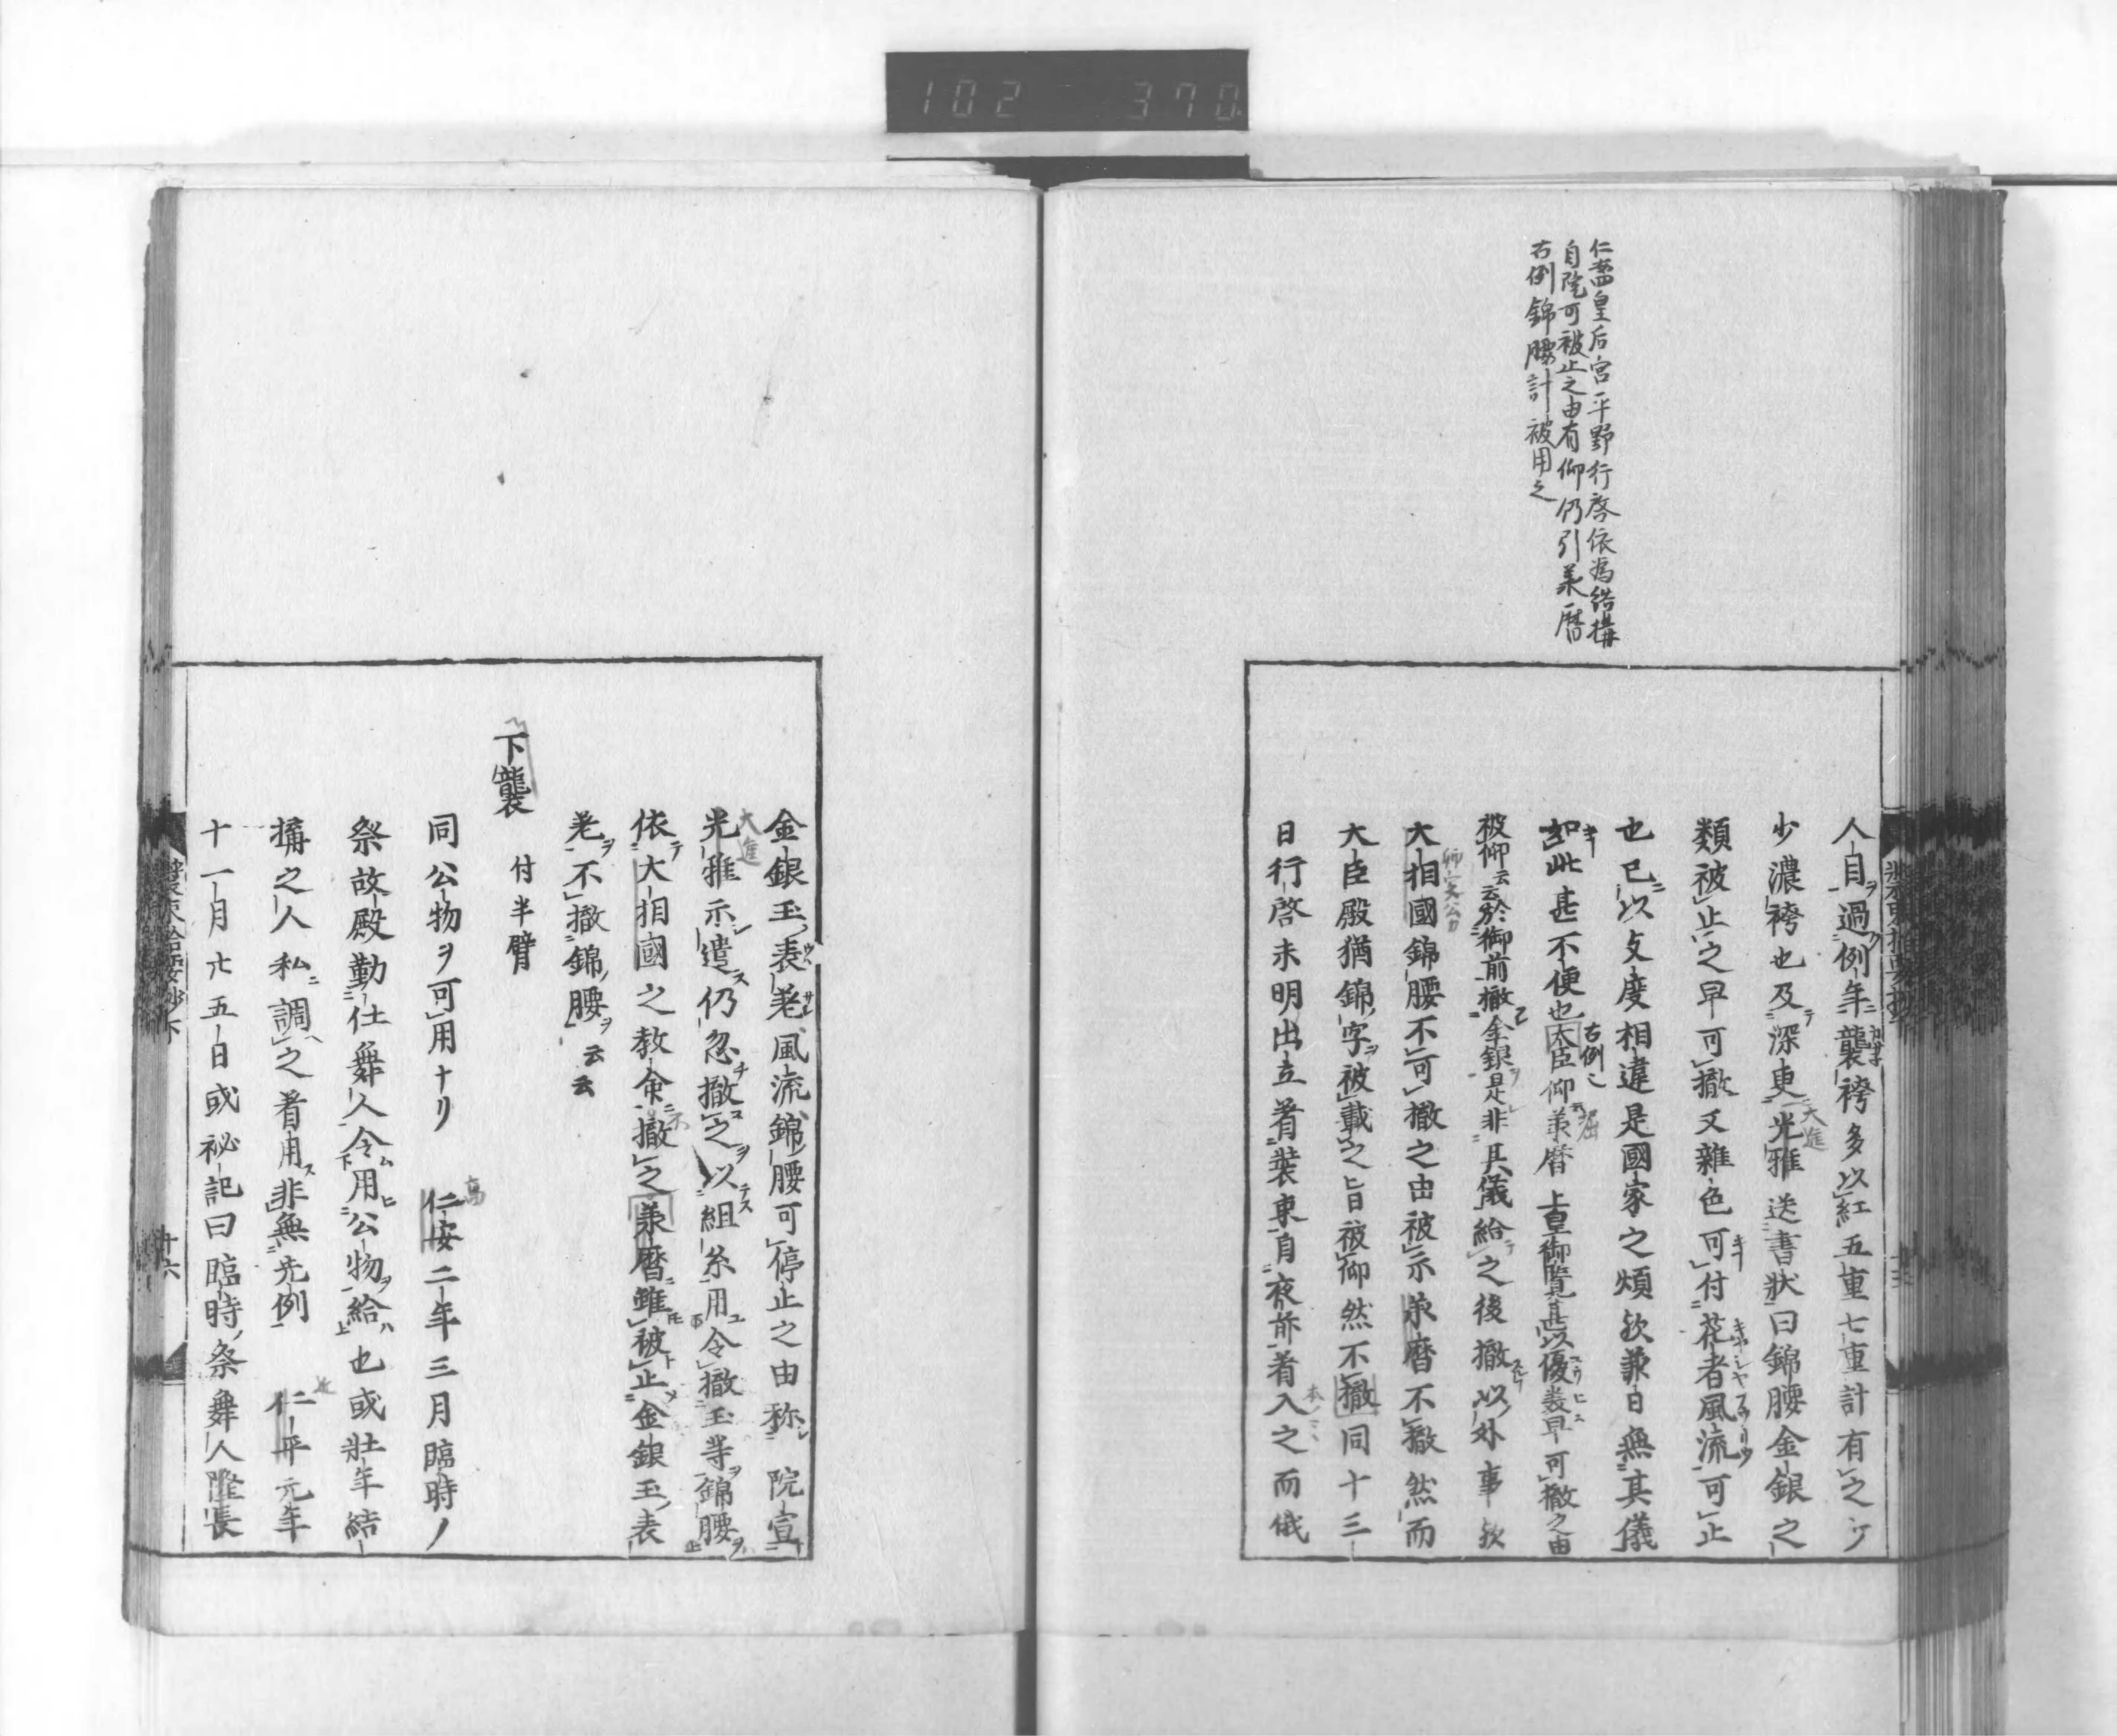 102 370
仁四皇后宮平野行啓依為結構
自院可被止之由有仰仍引兼暦
右例錦腰計被用之
人目過例年襲袴多以紅五重七重計有之少
少濃袴也及深更光雅送書状曰錦腰金銀之
類被止之早可撤又雜色可付花者風流可止
也已以支度相違是國家之煩欤兼日無其儀
如此甚不便也大臣仰兼暦上皇御覧甚以優美早可撤之由
被仰云云於御前撤金銀是非其儀給之後撤以外事欤
大相國錦腰不可撤之由被示兼暦不撤然而
大臣殿猶錦字被載之旨被仰然不撤同十三
日行啓未明出立着装束自夜所着入之而俄
金銀玉表着風流錦腰可停止之由称院宣
光雅示遣仍忽撤之以組糸用令撤玉等錦腰
依大相國之教命撤之兼暦雖被止金銀玉表
着不撤錦腰云云
下襲 付半臂
同公物ヲ可用ナリ 仁安二年三月臨時ノ
祭故殿勤仕舞人令用公物給也或壮年結
搆之人私調之着用非無先例 仁平元年
十一月廿五日或祕記曰臨時祭舞人隆長
装束拾要抄下
十六